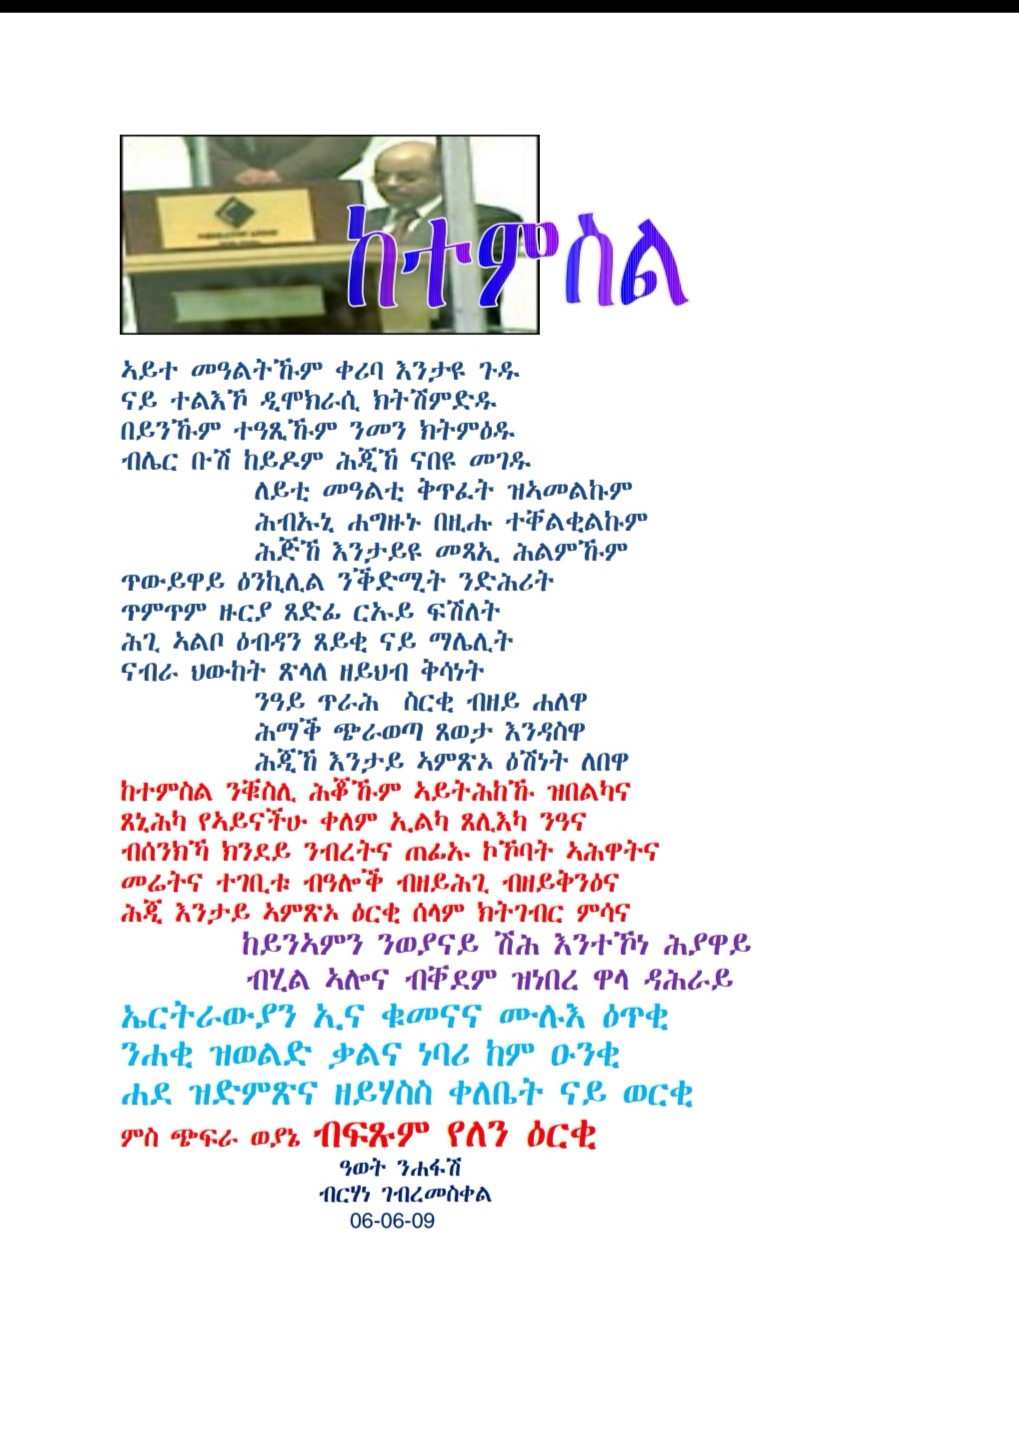 ከተምስል
ኣይተ መዓልትኹም ቀሪባ እንታዩ ጉዱ
ናይ ተልእኾ ዲሞክራሲ ክትሽምድዱ
በይንኹም ተዓጺኹም ንመን ክትምዕዱ
ብሌር ቡሽ ከይዶም ሕጂኸ ናበዩ መገዱ
ለይቲ መዓልቲ ቅጥፈት ዝኣመልኩም
ሕብኡኒ ሐግዙኑ በዚሑ ተቐልቂልኩም
ሕጅኸ እንታይዩ መጻኢ ሕልምኹም
ጥውይዋይ ዕንኪሊል ንቕድሚት ንድሕሪት
ጥምጥም ዙርያ ጸድፊ ርኡይ ፍሽለት
ሕጊ ኣልቦ ዕብዳን ጸይቂ ናይ ማሌሊት
ናብራ ህውከት ጽላለ ዘይህብ ቅሳነት
ንዓይ ጥራሕ ስርቂ ብዘይ ሐለዋ
ሕማቕ ጭራወጣ ጸወታ እንዳስዋ
ሕጂኸ እንታይ ኣምጽኦ ዕሽነት ለበዋ
ከተምስል ንቑስሊ ሕቖኹም ኣይትሕከኹ ዝበልካና
ጸኒሕካ የኣይናችሁ ቀለም ኢልካ ጸሊእካ ንዓና
ብሰንክኻ ክንደይ ንብረትና ጠፊኡ ኮኾባት ኣሕዋትና
መሬትና ተገቢቱ ብዓሎቕ ብዘይሕጊ ብዘይቅንዕና
ሕጂ እንታይ ኣምጽኦ ዕርቂ ሰላም ክትገብር ምሳና
ከይንኣምን ንወያናይ ሽሕ እንተኾነ ሕያዋይ
ብሂል ኣሎና ብቐደም ዝነበረ ዋላ ዳሕራይ
ኤርትራውያን ኢና ቁመናና ሙሉእ ዕጥቂ
ንሐቂ ዝወልድ ቃልና ነባሪ ከም ዑንቂ
ሐደ ዝድምጽና ዘይሃስስ ቀለቤት ናይ ወርቂ
ምስ ጭፍራ ወያኔ ብፍጹም የለን ዕርቂ
ዓወት ንሐፋሽ
ብርሃነ ገብረመስቀል
06-06-09